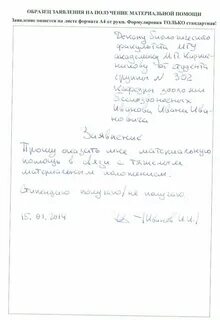 ОБРАЗЕЦ ЗАЯВЛЕНИЯ НА ПОЛУЧЕНИЕ МАТЕРИАЛЬНОЙ ПОМОЩИ
Заявление пишется на листе формата А4 от руки. Формулировка ТОЛЬКО стандартная!
Декану биологического
факультета МГУ
академику М.П. Кирпи-
чникову от студента
группы № 302
кафедры зоологии
беспозвоночных
Иванова Ивана Ива-
новича
Заявление
Прошу оказать мне материальную
помощь в связи с тяжелым
материальным положением.
Стипендию получаю/не получаю
15.01.2014 /Иванов И.И./